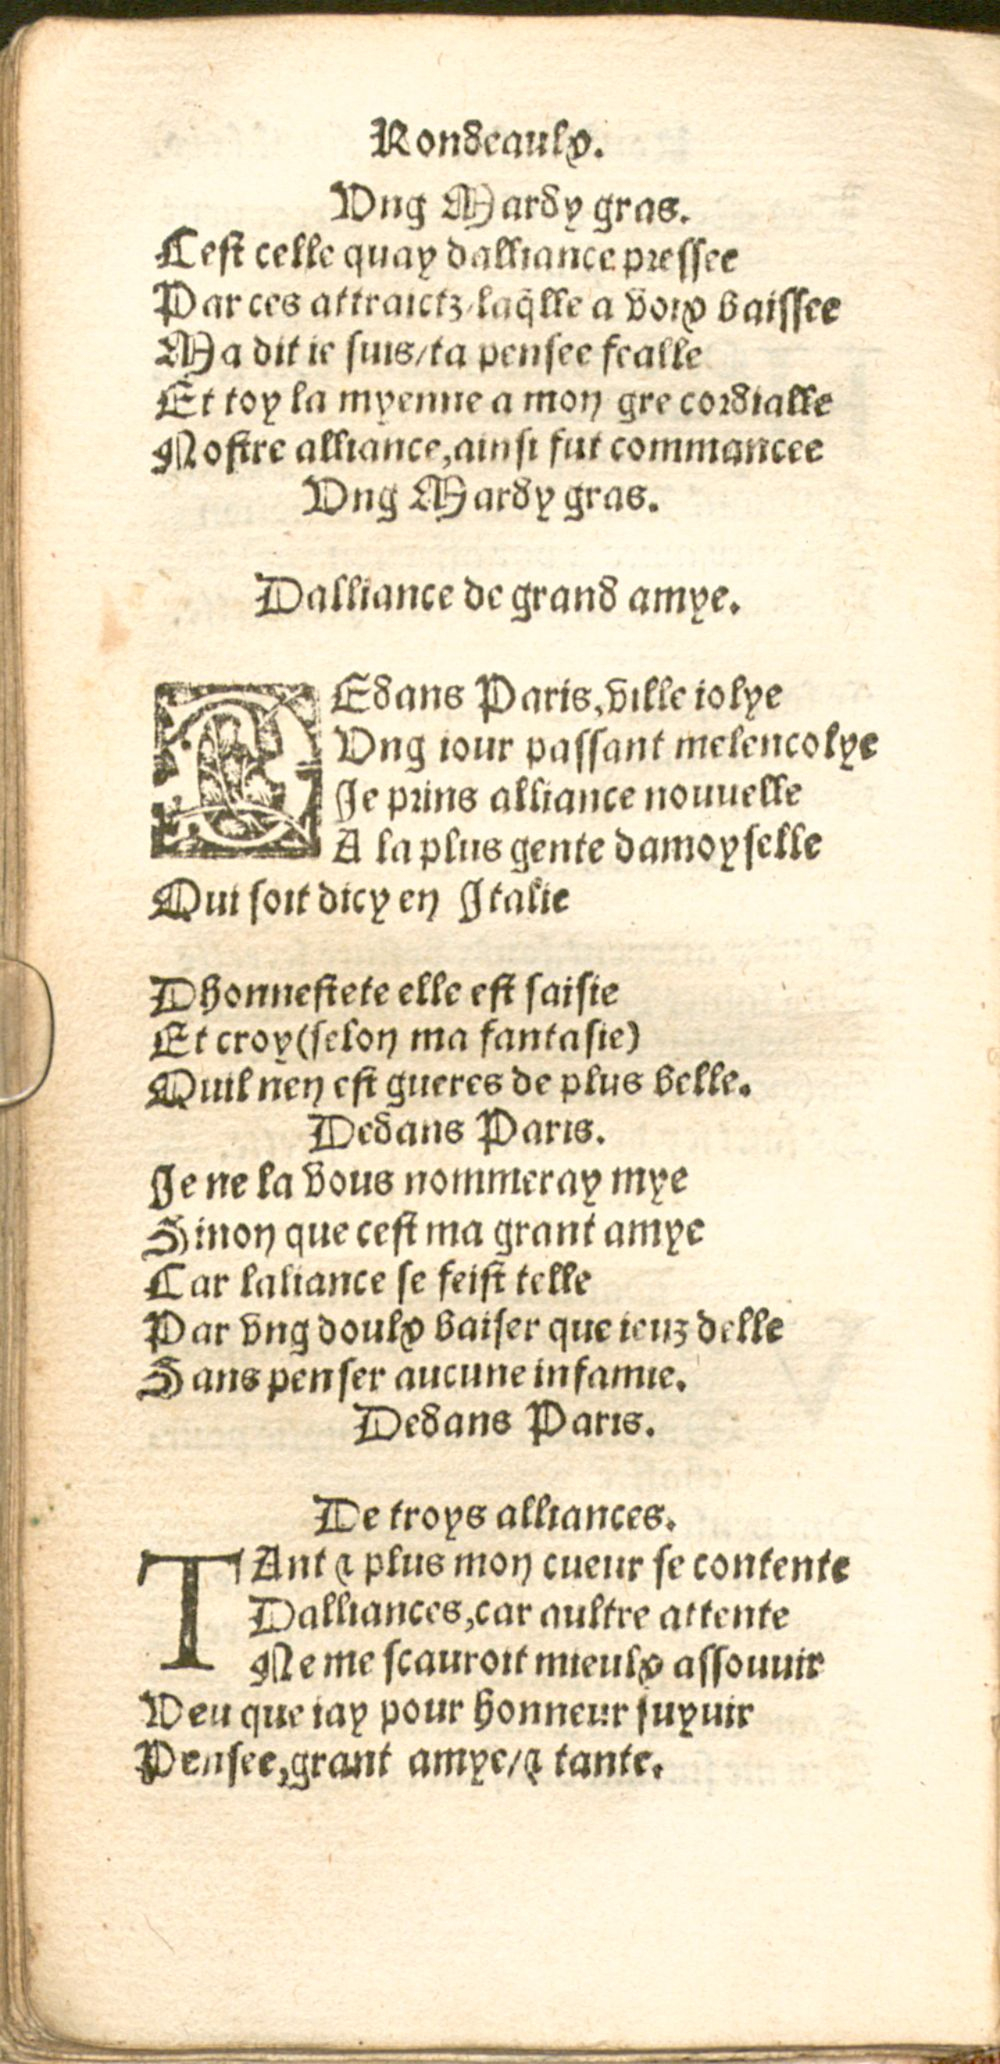 Rondeaulx.
Vng Mardy gras.
Cest celle quay dalliance pressee
Par ces attraictz/laq̃lle a voix baissee
Ma dit ie suis/ta pensee fealle
Et toy la myenne a mon gre cordialle
Nostre alliance,ainsi fut commancee
Vng Mardy gras.
Dalliance de grand amye.
DEdans Paris,ville iolye
Vng iour passant melencolye
Je prins alliance nouuelle
A la plus gente damoyselle
Qui soit dicy en Italie
Dhonnestete elle est saisie
Et croy(selon ma fantasie)
Quil nen est gueres de plus belle.
Dedans Paris.
Je ne la vous nommeray mye
Sinon que cest ma grant amye
Car laliance se feist telle
Par vng doulx baiser que ieuz delle
Sans penser aucune infamie.
Dedans Paris.
De troys alliances.
TAnt ⁊ plus mon cueur se contente
Dalliances,car aultre attente
Ne me scauroit mieulx assouuir
Veu que iay pour honneur suyuir
Pensee,grant amye/⁊ tante.